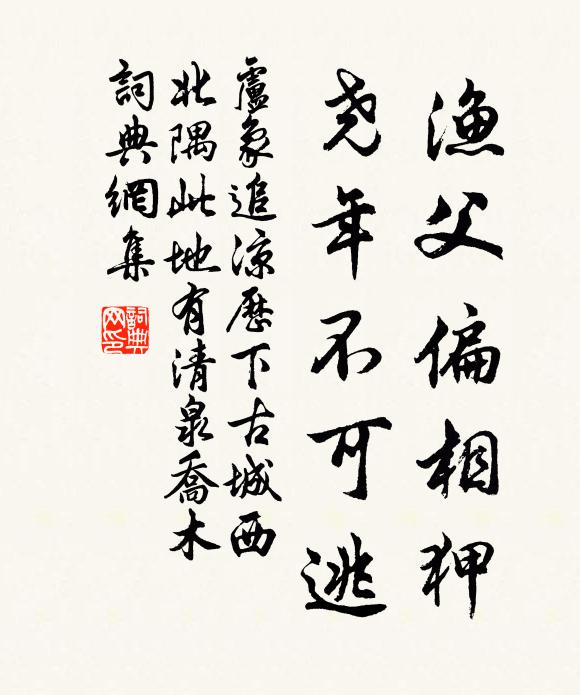 漁父偏相狎
尧年不可逃
盧象追涼歷下古城西
北隅此地有清泉喬木
詞典網集
詞典网印